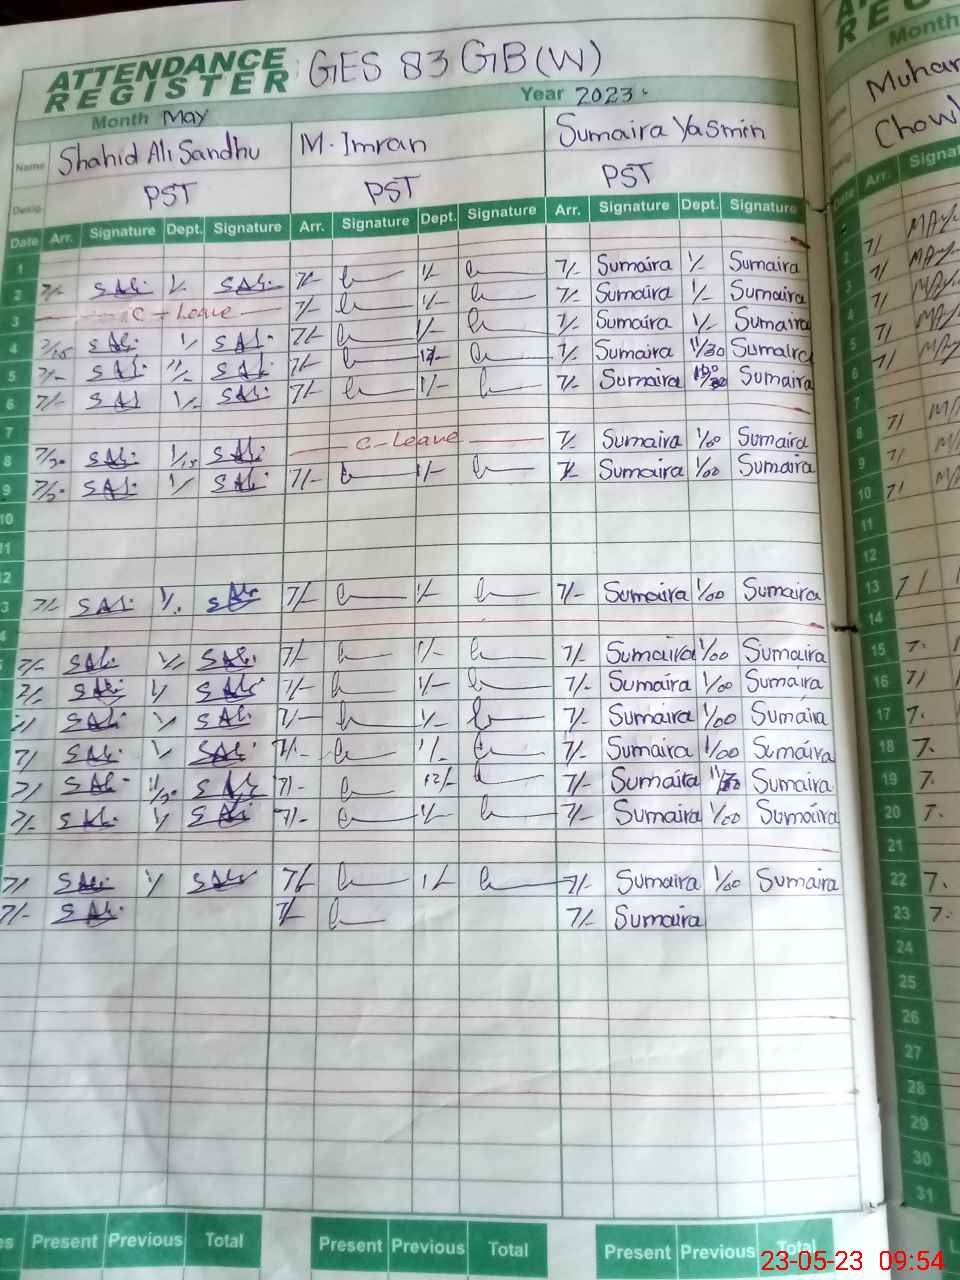 ATTENDANCE REGISTER GES 83 GB(W)
Month May Year 2023
Name Shahid Ali Sandhu M. Imran Sumaira Yasmin
Desig. PST PST PST
Date Arr. Signature Dept. Signature Arr. Signature Dept. Signature Arr. Signature Dept. Signature
1
2 7/- SAli 1/- SAli 7/- 1/- 7/- Sumaira 1/- Sumaira
3 C-Leave 7/- 1/- 7/- Sumaira 1/- Sumaira
4 7/15 SAli 1/ SAli 7/- 1/- 7/- Sumaira 1/- Sumaira
5 7/- SAli 11/- SAli 7/- 7/- Sumaira 11/30 Sumaira
6 7/- SAli 1/- SAli 7/- 1/- 7/- Sumaira Sumaira
7
8 SAli 1/15 SAli C-Leave 7/- Sumaira 1/00 Sumaira
9 SAli 1/ SAli 7/- 1/- 7/- Sumaira 1/00 Sumaira
10
11
12
13 7/- SAli 1/. SAli 7/- 1/- 7/- Sumaira 1/00 Sumaira
14
7/- SAli 1/- SAli 7/- 1/- 7/- Sumaira 1/00 Sumaira
7/- SAli 1/ SAli 7/- 1/- 7/- Sumaira 1/00 Sumaira
SAli 1/ SAli 7/- 1/- 7/- Sumaira 1/00 Sumaira
7/ SAli 1/ SAli 7/- 1/- 7/- Sumaira 1/00 Sumaira
7/ SAli 11/30 SAli 7/- 12/- 7/- Sumaira 11/30 Sumaira
7/- SAli 1/ SAli 7/- 1/- 7/- Sumaira 1/00 Sumaira
7/ SAli 1/ SAli 7/- 1/- 7/- Sumaira 1/00 Sumaira
7/- SAli 7/- 7/- Sumaira
Present Previous Total Present Previous Total Present Previous Total
REG
Month
Muhar
Chow
Date Arr. Signat
2 7/
3 7/
4 7/
5 7/
6 7/
7
8 7/
9 7/
10 7/
11
12
13 7/
14
15 7.
16 7/
17 7.
18 7.
19 7.
20 7.
21
22 7.
23 7.
24
25
26
27
28
29
30
31
23-05-23 09:54